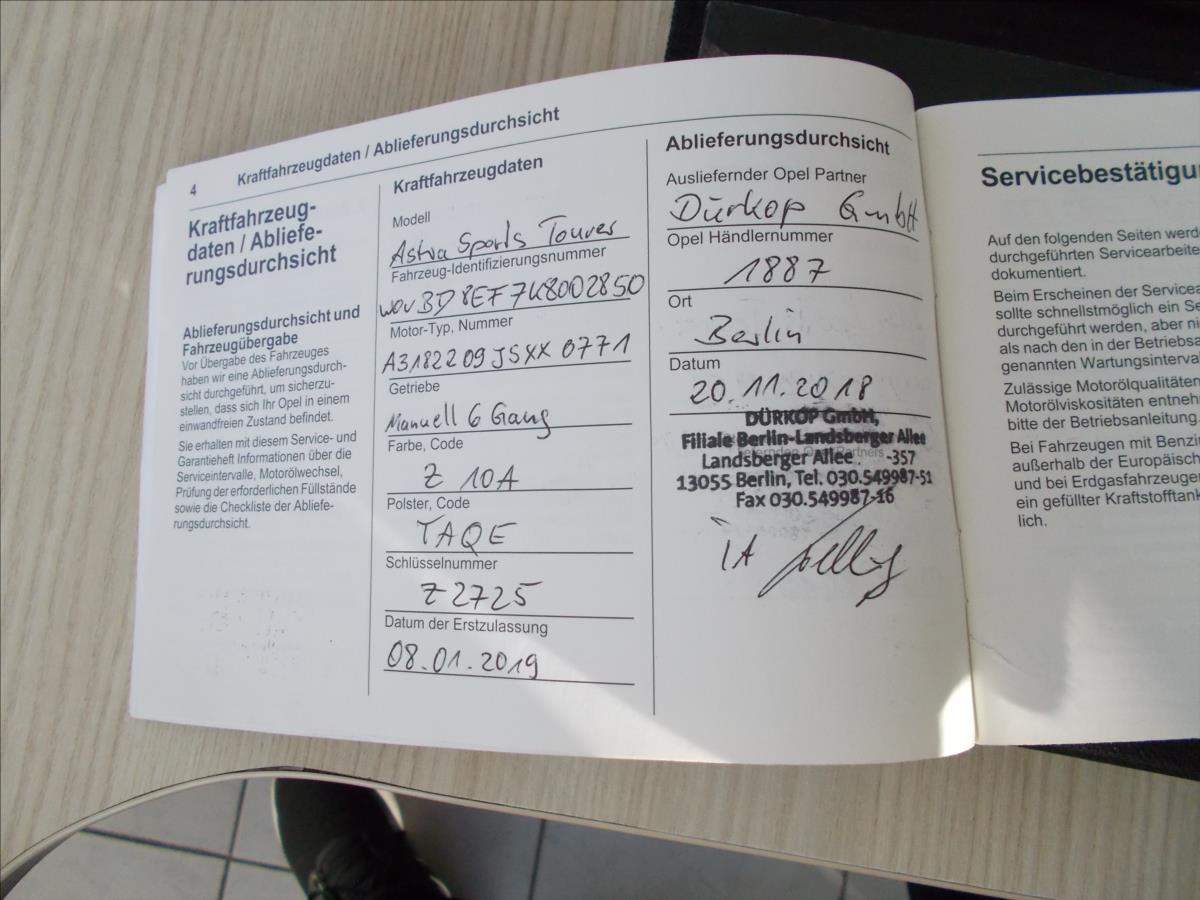 4 Kraftfahrzeugdaten / Ablieferungsdurchsicht
Kraftfahrzeug-
daten / Abliefe-
rungsdurchsicht
Ablieferungsdurchsicht und
Fahrzeugübergabe
Vor Übergabe des Fahrzeuges
haben wir eine Ablieferungsdurch-
sicht durchgeführt, um sicherzu-
stellen, dass sich Ihr Opel in einem
einwandfreien Zustand befindet.
Sie erhalten mit diesem Service- und
Garantieheft Informationen über die
Serviceintervalle, Motorölwechsel,
Prüfung der erforderlichen Füllstände
sowie die Checkliste der Abliefe-
rungsdurchsicht.
Kraftfahrzeugdaten
Modell
Astra Sports Tourer
Fahrzeug-Identifizierungsnummer
W0VBD8EF7K8002850
Motor-Typ, Nummer
A3182209JSXX0771
Getriebe
Manuell 6 Gang
Farbe, Code
Z 10A
Polster, Code
TAQE
Schlüsselnummer
Z2725
Datum der Erstzulassung
08.01.2019
Ablieferungsdurchsicht
Ausliefernder Opel Partner
Dürkop GmbH
Opel Händlernummer
1887
Ort
Berlin
Datum
20.11.2018
DÜRKOP GmbH,
Filiale Berlin-Landsberger Allee
Landsberger Allee -357
13055 Berlin, Tel. 030.549987-51
Fax 030.549987-16
iA
Servicebestätigu
Auf den folgenden Seiten werd
durchgeführten Servicearbeite
dokumentiert.
Beim Erscheinen der Servicea
sollte schnellstmöglich ein Se
durchgeführt werden, aber ni
als nach den in der Betriebsa
genannten Wartungsinterva
Zulässige Motorölqualitäte
Motorölviskositäten entneh
bitte der Betriebsanleitung.
Bei Fahrzeugen mit Benzi
außerhalb der Europäisch
und bei Erdgasfahrzeuge
ein gefüllter Kraftstofftank
lich.